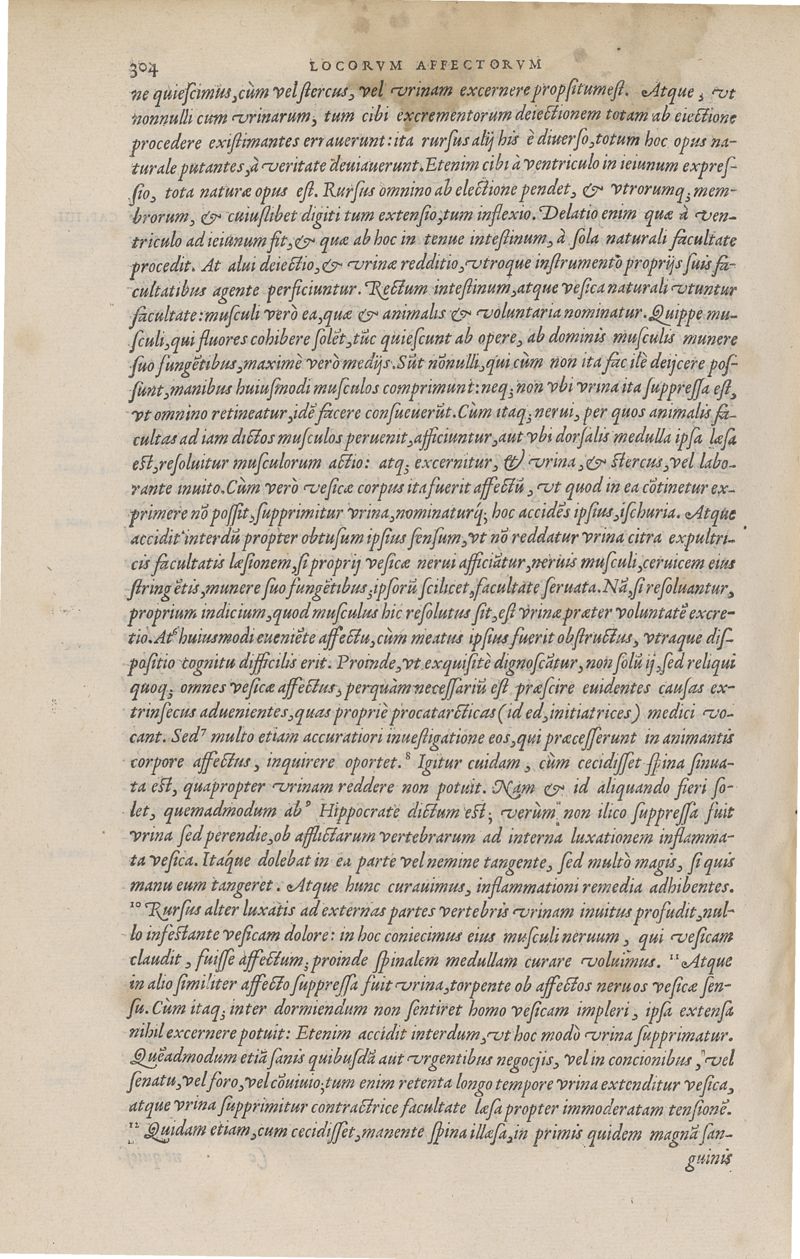 304 LOCORVM AFFECTORVM
ne quieſcimus, cùm vel ſtercus, vel vrinam excernere propſitum eſt. Atque, vt
nonnulli cum vrinarum, tum cibi excrementorum deiectionem totam ab eiectione
procedere exiſtimantes errauerunt: ita rurſus alij his è diuerſo, totum hoc opus na-
turale putantes, à veritate deuiauerunt. Etenim cibi à ventriculo in ieiunum expreſ-
ſio, tota naturæ opus eſt. Rurſus omnino ab electione pendet, & vtrorumq; mem-
brorum, & cuiuſlibet digiti tum extenſio, tum inflexio. Delatio enim quæ à ven-
triculo ad ieiunum fit, & quæ ab hoc in tenue inteſtinum, à ſola naturali facultate
procedit. At alui deiectio, & vrinæ redditio, vtroque inſtrumento proprijs ſuis fa-
cultatibus agente perficiuntur. Rectum inteſtinum, atque veſica naturali vtuntur
facultate: muſculi verò ea, quæ & animalis & voluntaria nominatur. Quippe mu-
ſculi, qui fluores cohibere ſolẽt, tũc quieſcunt ab opere, ab dominis muſculis munere
ſuo fungẽtibus, maximè verò medijs. Sũt nõnulli, qui cùm non ita facilè deijcere poſ-
ſunt, manibus huiuſmodi muſculos comprimunt: neq; non vbi vrina ita ſuppreſſa eſt,
vt omnino retineatur, idẽ facere conſueuerũt. Cùm itaq; nerui, per quos animalis fa-
cultas ad iam dictos muſculos peruenit, afficiuntur, aut vbi dorſalis medulla ipſa læſa
eſt, reſoluitur muſculorum actio: atq; excernitur, & vrina, & ſtercus, vel labo-
rante inuito. Cùm verò veſicæ corpus ita fuerit affectũ, vt quod in ea cõtinetur ex-
primere nõ poſſit, ſupprimitur vrina, nominaturq́; hoc accidẽs ipſius, iſchuria. Atque
accidit interdũ propter obtuſum ipſius ſenſum, vt nõ reddatur vrina citra expultri-
cis facultatis læſionem, ſi proprij veſicæ nerui afficiãtur, neruis muſculi, ceruicem eius
ſtringẽtis, munere ſuo fungẽtibus, ipſorũ ſcilicet, facultate ſeruata. Nã, ſi reſoluantur,
proprium indicium, quod muſculus hic reſolutus ſit, eſt vrinæ præter voluntatẽ excre-
tio. At⁶ huiusmodi eueniẽte affectu, cùm meatus ipſius fuerit obſtructus, vtraque diſ-
poſitio cognitu difficilis erit. Proinde, vt exquiſitè dignoſcãtur, non ſolũ ij, ſed reliqui
quoq; omnes veſicæ affectus, perquàm neceſſariũ eſt præſcire euidentes cauſas ex-
trinſecus aduenientes, quas propriè procatarcticas (id ed, initiatrices) medici vo-
cant. Sed⁷ multo etiam accuratiori inueſtigatione eos, qui præceſſerunt in animantis
corpore affectus, inquirere oportet. ⁸ Igitur cuidam, cùm cecidiſſet ſpina ſinua-
ta eſt, quapropter vrinam reddere non potuit. Nam & id aliquando fieri ſo-
let, quemadmodum ab⁹ Hippocrate dictum eſt; verùm non ilico ſuppreſſa fuit
vrina ſed perendie, ob afflictarum vertebrarum ad interna luxationem inflamma-
ta veſica. Itáque dolebat in ea parte vel nemine tangente, ſed multò magis, ſi quis
manu eum tangeret. Atque hunc curauimus, inflammationi remedia adhibentes.
¹⁰ Rurſus alter luxatis ad externas partes vertebris vrinam inuitus profudit, nul-
lo infeſtante veſicam dolore: in hoc coniecimus eius muſculi neruum, qui veſicam
claudit, fuiſſe affectum; proinde ſpinalem medullam curare voluimus. ¹¹ Atque
in alio ſimiliter affecto ſuppreſſa fuit vrina, torpente ob affectos neruos veſicæ ſen-
ſu. Cùm itaq; inter dormiendum non ſentiret homo veſicam impleri, ipſa extenſa
nihil excernere potuit: Etenim accidit interdum, vt hoc modò vrina ſupprimatur.
Quẽadmodum etiã ſanis quibuſdã aut vrgentibus negocijs, vel in concionibus, vel
ſenatu, vel foro, vel cõuiuio; tum enim retenta longo tempore vrina extenditur veſica,
atque vrina ſupprimitur contractrice facultate læſa propter immoderatam tenſionẽ.
¹² Quidam etiam, cum cecidiſſet, manente ſpina illæſa, in primis quidem magnã ſan-
guinis